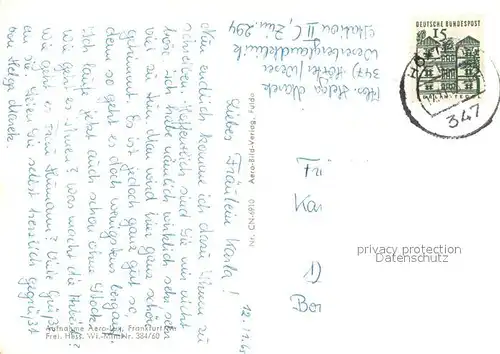 Abs. Helga Marek
347) Höxter/Weser
Weserberglandklinik
Station II C, Zi. 294
DEUTSCHE BUNDESPOST
15
347
12.11.65
Liebes Fräulein Karla!
Nun endlich komme ich dazu Ihnen zu
schreiben. Hoffentlich sind Sie mir nicht
böse, ich habe nämlich wirklich sehr sehr
viel zu tun. Man wird hier ganz schön
getrimmt. Es ist jedoch ganz gut so,
denn so geht es doch wenigstens bergauf.
Ich laufe jetzt auch schon ohne Stock.
Wie geht es Ihnen? Was macht die Arbeit?
Wie geht es Frau Numann? Viele Grüße
an sie. Seien Sie selbst herzlichst gegrüßt
von Helga Marek.
Nr. CN.4910 Aero-Bild-Verlag, Fulda
Aufnahme Aero-Lux, Frankfurt/M
Frei. Hess. Wi.-Min. Nr. 384/60
Kar
Ber
privacy protection
Datenschutz